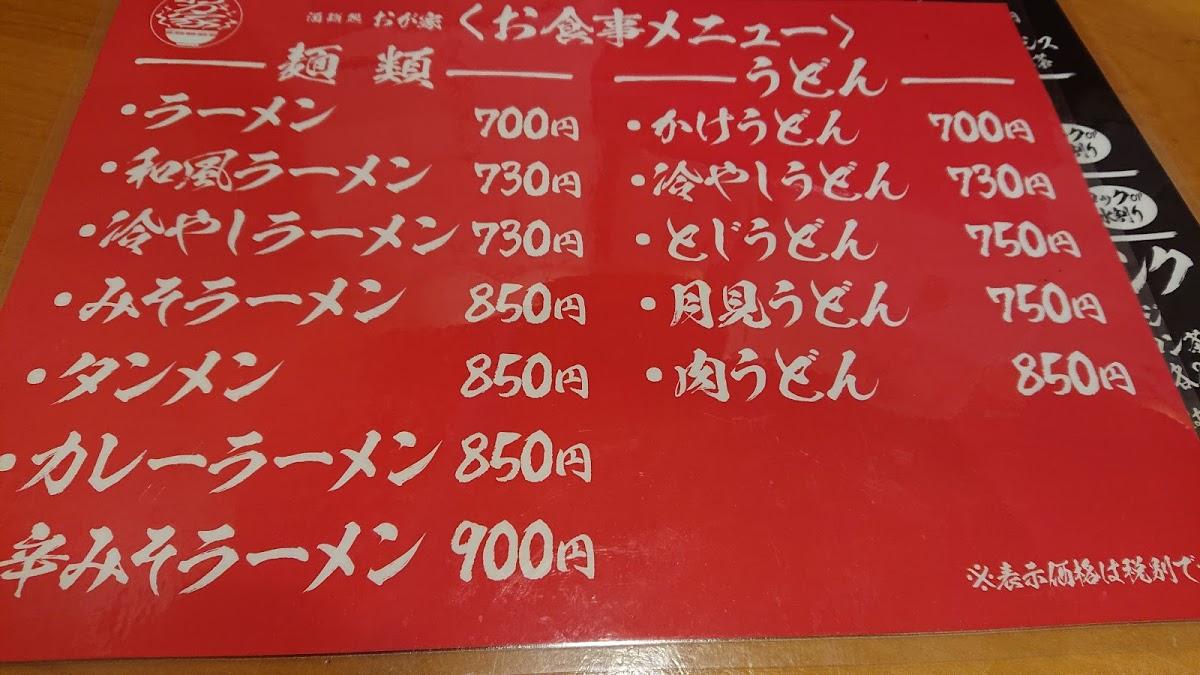 酒麺処 おが家 〈お食事メニュー〉
麺類
・ラーメン 700円
・和風ラーメン 730円
・冷やしラーメン 730円
・みそラーメン 850円
・タンメン 850円
・カレーラーメン 850円
辛みそラーメン 900円
うどん
・かけうどん 700円
・冷やしうどん 730円
・とじうどん 750円
・月見うどん 750円
・肉うどん 850円
※表示価格は税別で